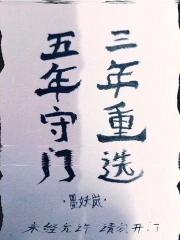 三年重选
五年守门
未经允许 请勿开门